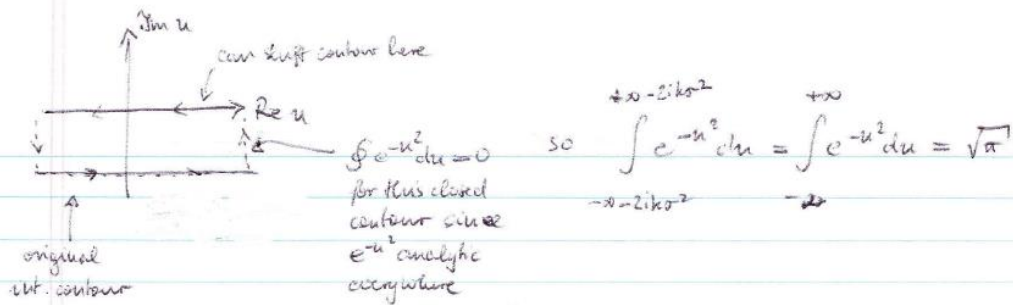 Im u
can shift contour here
Re u
∮ e^{-u^2} du = 0
for this closed
contour since
e^{-u^2} analytic
everywhere
original
int. contour
so ∫_{-∞-2ikσ^2}^{+∞-2ikσ^2} e^{-u^2} du = ∫_{-∞}^{+∞} e^{-u^2} du = √π